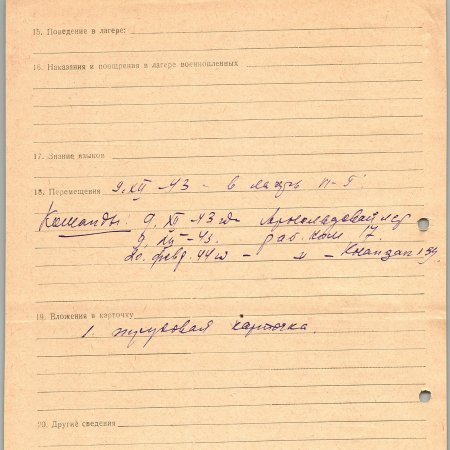 15. Поведение в лагере:
16. Наказания и поощрения в лагере военнопленных
17. Знание языков
18. Перемещения 9. XII -43 - в лагерь
Команды: 9. XII -43
9. XII -43. раб. ком 17.
20. февр. 44 - " -
19. Вложения в карточку
1. карточка.
20. Другие сведения